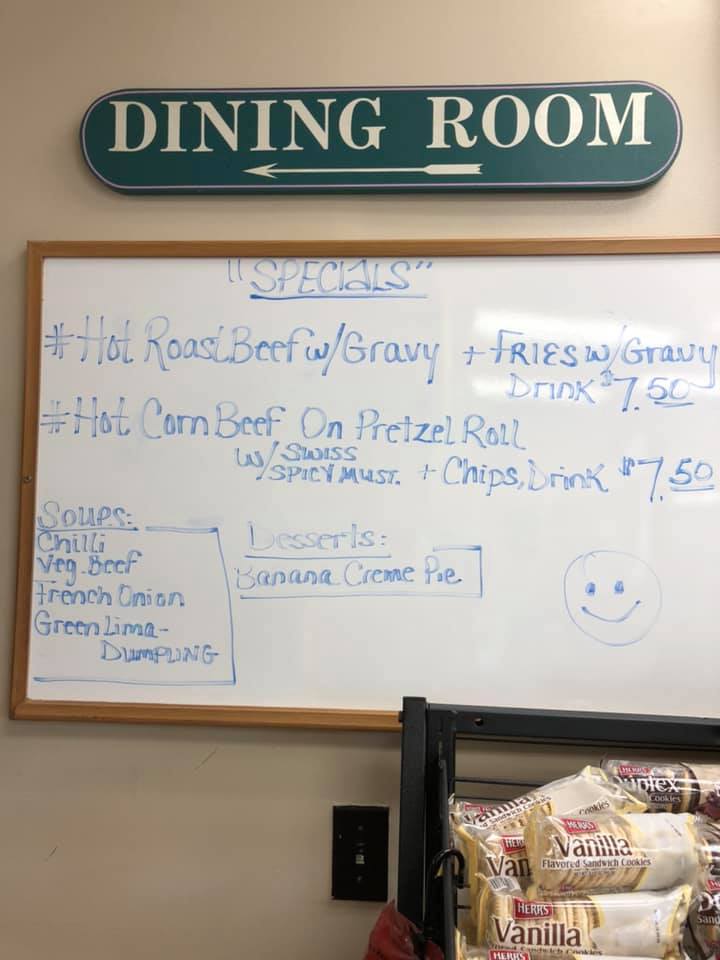 DINING ROOM
"SPECIALS"
#Hot Roast Beef w/Gravy + FRIES w/Gravy
Drink $7.50
#Hot Corn Beef On Pretzel Roll
w/ SWISS
SPICY MUST. + Chips, Drink $7.50
Soups:
Chilli
Veg. Beef
French Onion
Green Lima-
DUMPLING
Desserts:
Banana Creme Pie
HERR'S
Duplex
Cookies
Vanilla
Sandwich Cookies
HERR'S
Vanilla
Flavored Sandwich Cookies
HERR'S
Van
HERR'S
Vanilla
Flavored Sandwich Cookies
HERR'S